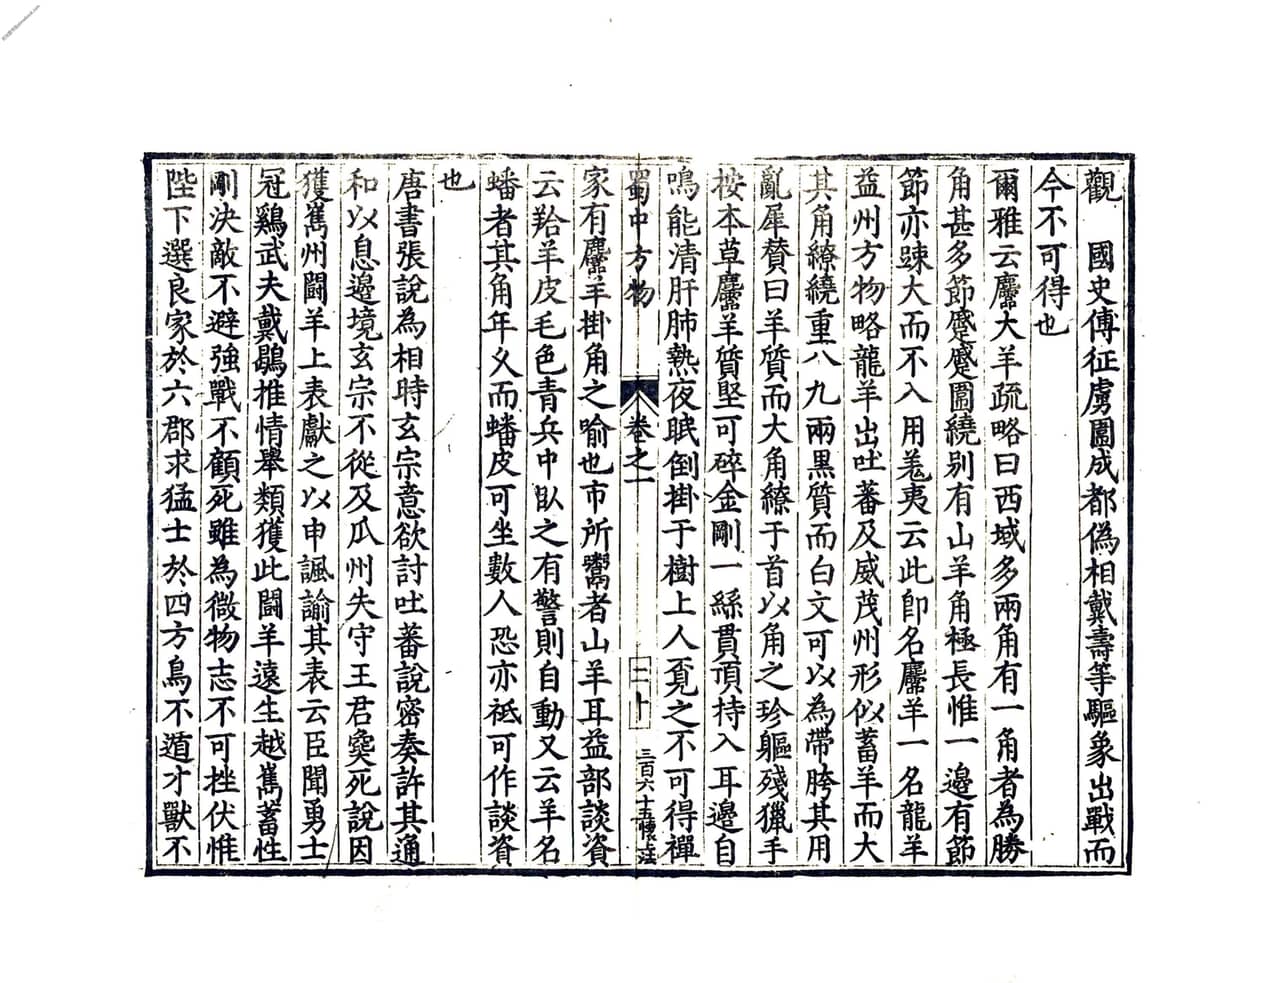 觀　國史傅征虜圖成都偽相戴壽等驅象出戰而
今不可得也
爾雅云麢大羊疏略曰西域多兩角有一角者為勝
角甚多節蹙蹙圓繞别有山羊角極長惟一邊有節
節亦疎大而不入用羌夷云此即名麢羊一名龍羊
益州方物略龍羊出吐蕃及威茂州形似蓄羊而大
其角繚繞重八九兩黑質而白文可以為帶胯其用
亂犀賛曰羊質而大角繚于首以角之珍軀殘獵手
按本草麢羊質堅可碎金剛一絲貫頂持入耳邊自
鳴能清肝肺熱夜眠倒掛于樹上人覔之不可得禪
蜀中方物　卷之一　二十　三百六十五懷上注
家有麢羊掛角之喻也市所鬻者山羊耳益部談資
云羚羊皮毛色青兵中臥之有警則自動又云羊名
蟠者其角年久而蟠皮可坐數人恐亦祗可作談資
也
唐書張說為相時玄宗意欲討吐蕃說密奏許其通
和以息邊境玄宗不從及瓜州失守王君㚟死說因
獲嶲州鬪羊上表獻之以申諷諭其表云臣聞勇士
冠鷄武夫戴鶡推情舉類獲此鬪羊遠生越嶲蓄性
剛決敵不避強戰不顧死雖為微物志不可挫伏惟
陛下選良家於六郡求猛士於四方鳥不遁才獸不